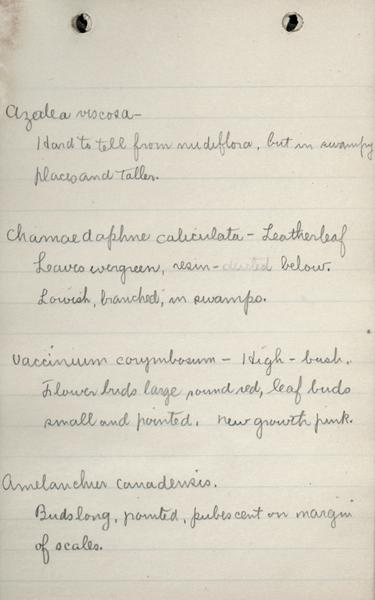 Azalea viscosa-
Hard to tell from nudiflora, but in swampy
places and taller.
Chamaedaphne caliculata - Leatherleaf
Leaves evergreen, resin-dotted below.
Lowish, branched, in swamps.
Vaccinium corymbosum - High-bush.
Flower buds large round red, leaf buds
small and pointed. New growth pink.
Amelanchier canadensis.
Buds long, pointed, pubescent on margin
of scales.